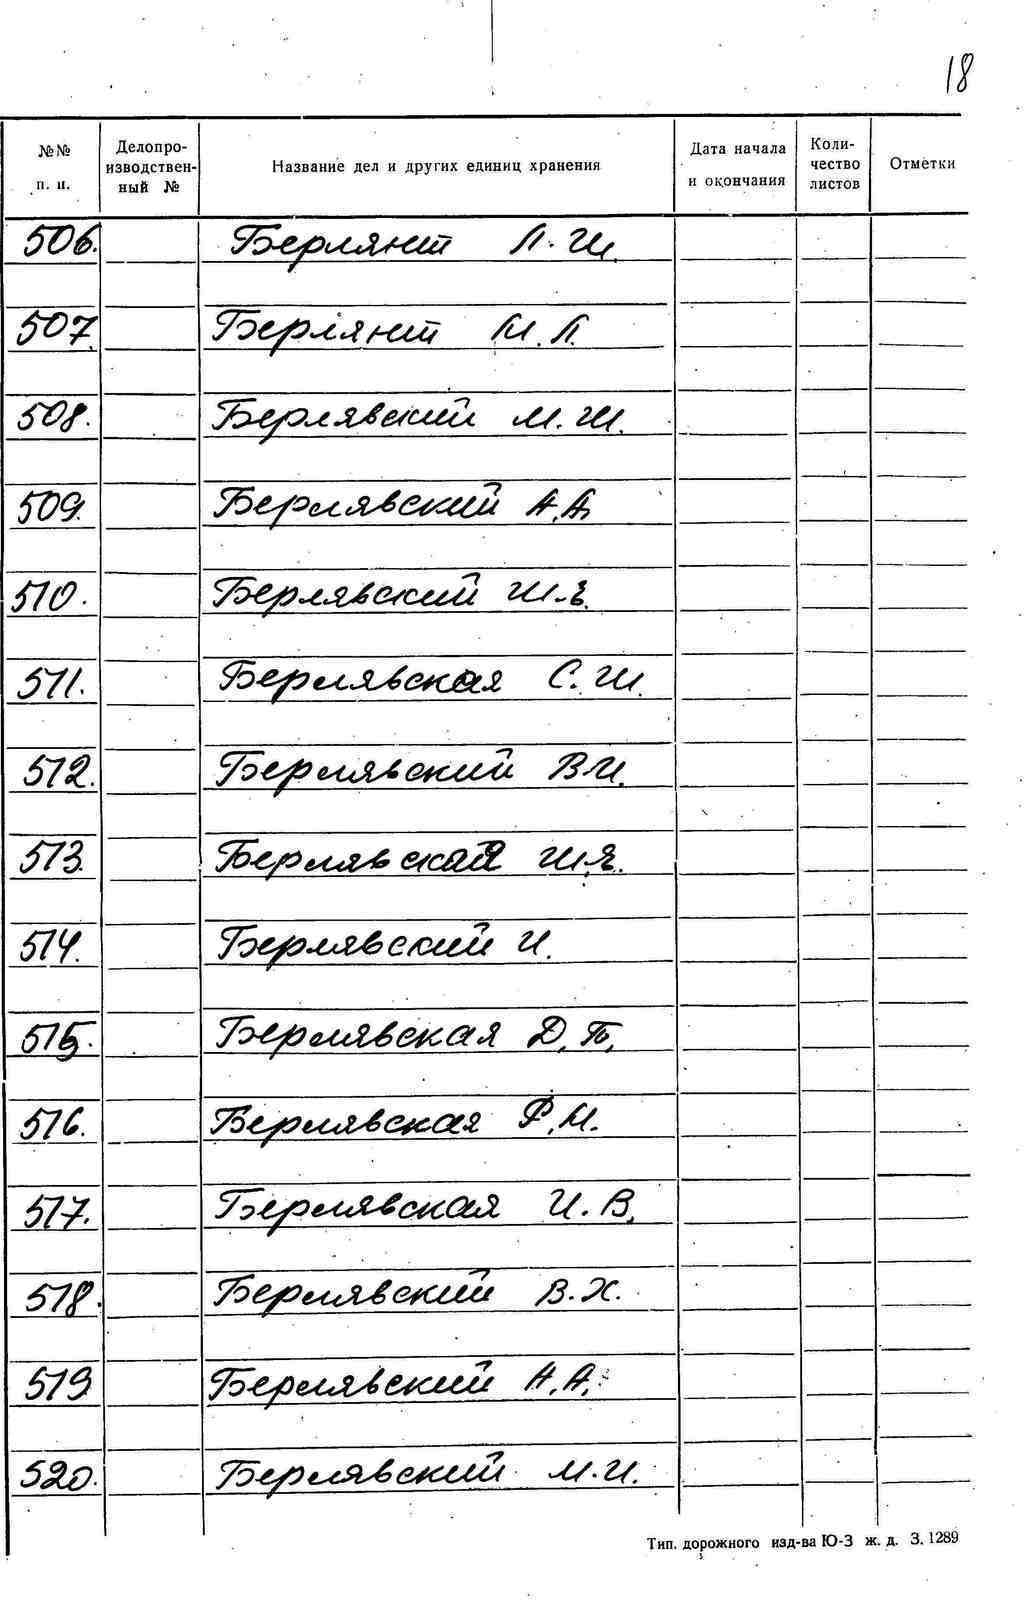 18
№№ п. п. Делопро-изводствен-ный № Название дел и других единиц хранения Дата начала и окончания Коли-чество листов Отметки
506. Берлянт Л. Ш.
507. Берлянт М. Л.
508. Берлявский М. Ш.
509. Берлявский А. А.
510. Берлявский Ш. Я.
511. Берлявская С. Ш.
512. Берлявский В. И.
513. Берлявская Ш. Я.
514. Берлявский И.
515. Берлявская Д. Б.
516. Берлявская Ф. М.
517. Берлявская И. В.
518. Берлявский В. Х.
519 Берлявский А. А.
520. Берлявский М. И.
Тип. дорожного изд-ва Ю-З ж. д. З. 1289